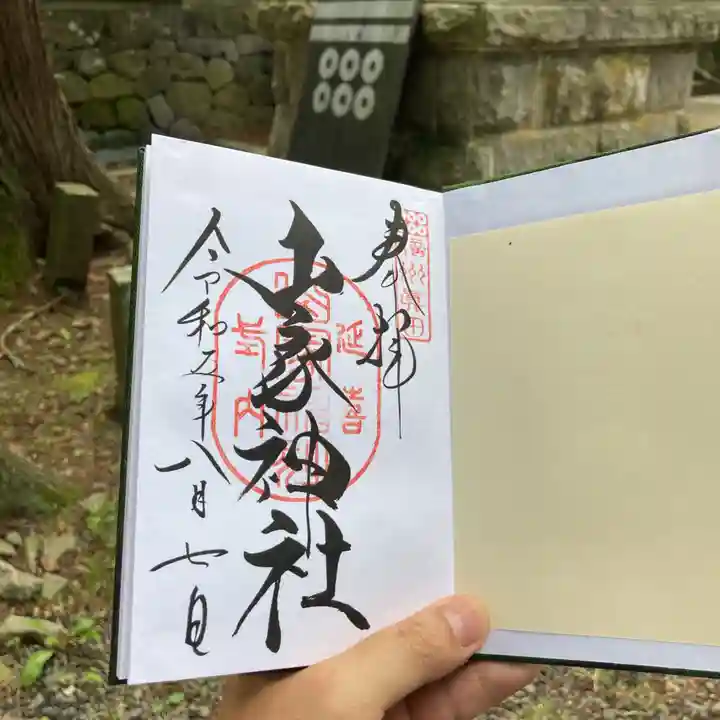 信州真田
奉拝
延喜
山家神社
式内
令和五年八月七日